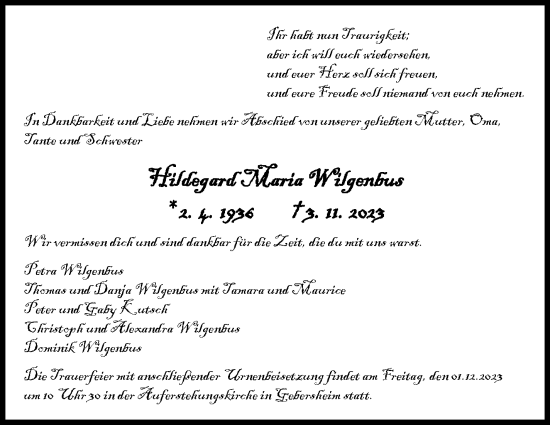 Ihr habt nun Traurigkeit;
aber ich will euch wiedersehen,
und euer Herz soll sich freuen,
und eure Freude soll niemand von euch nehmen.
In Dankbarkeit und Liebe nehmen wir Abschied von unserer geliebten Mutter, Oma,
Tante und Schwester
Hildegard Maria Wilgenbus
* 2. 4. 1936 † 3. 11. 2023
Wir vermissen dich und sind dankbar für die Zeit, die du mit uns warst.
Petra Wilgenbus
Thomas und Danja Wilgenbus mit Tamara und Maurice
Peter und Gaby Kutsch
Christoph und Alexandra Wilgenbus
Dominik Wilgenbus
Die Trauerfeier mit anschließender Urnenbeisetzung findet am Freitag, den 01.12.2023
um 10 Uhr 30 in der Auferstehungskirche in Gebersheim statt.